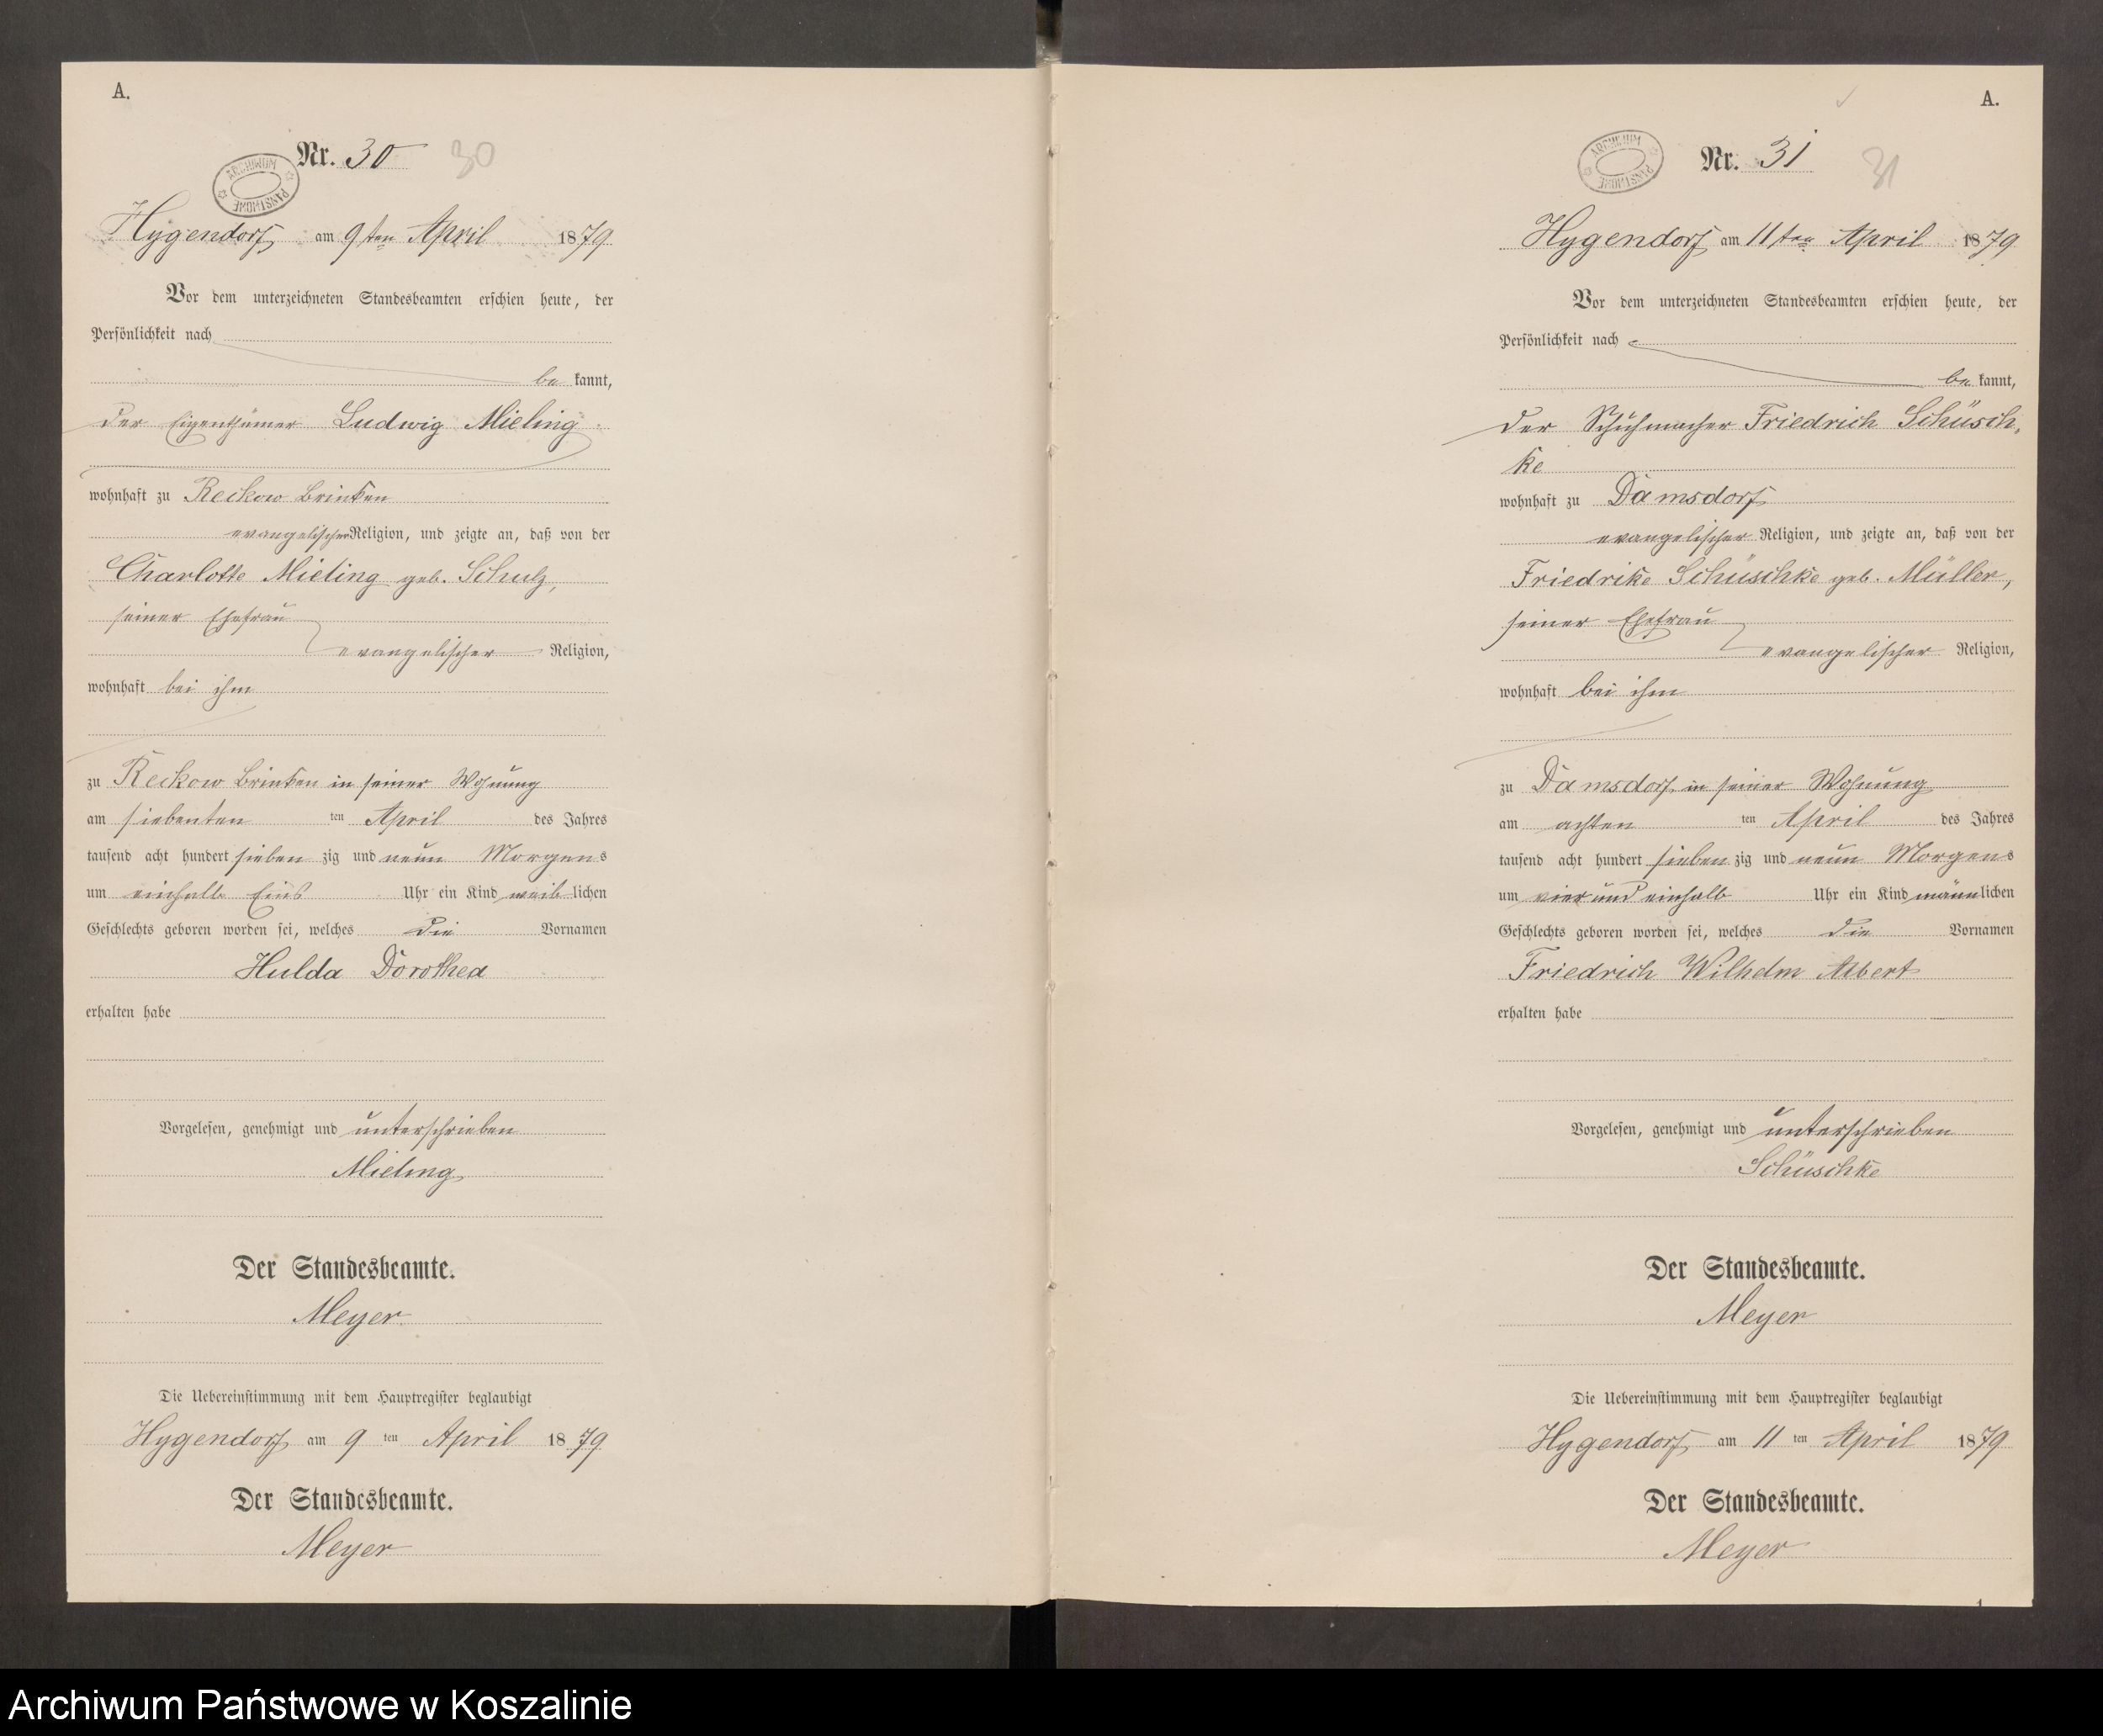 A.
Nr. 30 30
ARCHIWUM PAŃSTWOWE
Hygendorf am 9ten April 1879
Vor dem unterzeichneten Standesbeamten erschien heute, der
Persönlichkeit nach
be kannt,
der Eigenthümer Ludwig Mieling
wohnhaft zu Reckow Brinken
evangelischer Religion, und zeigte an, daß von der
Charlotte Mieling geb. Schulz,
seiner Ehefrau
evangelischer Religion,
wohnhaft bei ihm
zu Reckow Brinken in seiner Wohnung
am siebenten ten April des Jahres
tausend acht hundert sieben zig und neun Morgens
um einhalb Eins Uhr ein Kind weib lichen
Geschlechts geboren worden sei, welches die Vornamen
Hulda Dorothea
erhalten habe
Vorgelesen, genehmigt und unterschrieben
Mieling
Der Standesbeamte.
Meyer
Die Uebereinstimmung mit dem Hauptregister beglaubigt
Hygendorf am 9 ten April 1879
Der Standesbeamte.
Meyer
A.
Nr. 31 31
ARCHIWUM PAŃSTWOWE
Hygendorf am 11ten April 1879
Vor dem unterzeichneten Standesbeamten erschien heute, der
Persönlichkeit nach
be kannt,
der Schuhmacher Friedrich Schüsch-
ke
wohnhaft zu Damsdorf
evangelischer Religion, und zeigte an, daß von der
Friedrike Schüschke geb. Müller,
seiner Ehefrau
evangelischer Religion,
wohnhaft bei ihm
zu Damsdorf in seiner Wohnung
am achten ten April des Jahres
tausend acht hundert sieben zig und neun Morgens
um vier und einhalb Uhr ein Kind männ lichen
Geschlechts geboren worden sei, welches die Vornamen
Friedrich Wilhelm Albert
erhalten habe
Vorgelesen, genehmigt und unterschrieben
Schüschke
Der Standesbeamte.
Meyer
Die Uebereinstimmung mit dem Hauptregister beglaubigt
Hygendorf am 11 ten April 1879
Der Standesbeamte.
Meyer
Archiwum Państwowe w Koszalinie